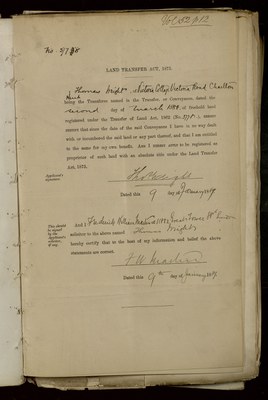 LAND TRANSFER ACT, 1875.
I Thomas Wright of Victoria Road Charlton
Kent
being the Transferee named in the Transfer, or Conveyance, dated the
second day of March 188 , of freehold land
registered under the Transfer of Land Act, 1862 (No. ), assure
assert that since the date of the said Conveyance I have in no way dealt
with or incumbered the said land or any part thereof, and that I am entitled
to the same for my own benefit. And I consent to be registered as
proprietor of such land with an absolute title under the Land Transfer
Act, 1875.
Applicant's
signature.
Thos Wright
Dated this 9 day of January 189
This should
be signed
by the
Applicant's
solicitor,
if any.
And I Frederick William
solicitor to the above named Thomas Wright
hereby certify that to the best of my information and belief the above
statements are correct.
F. W.
Dated this 9th day of January 189